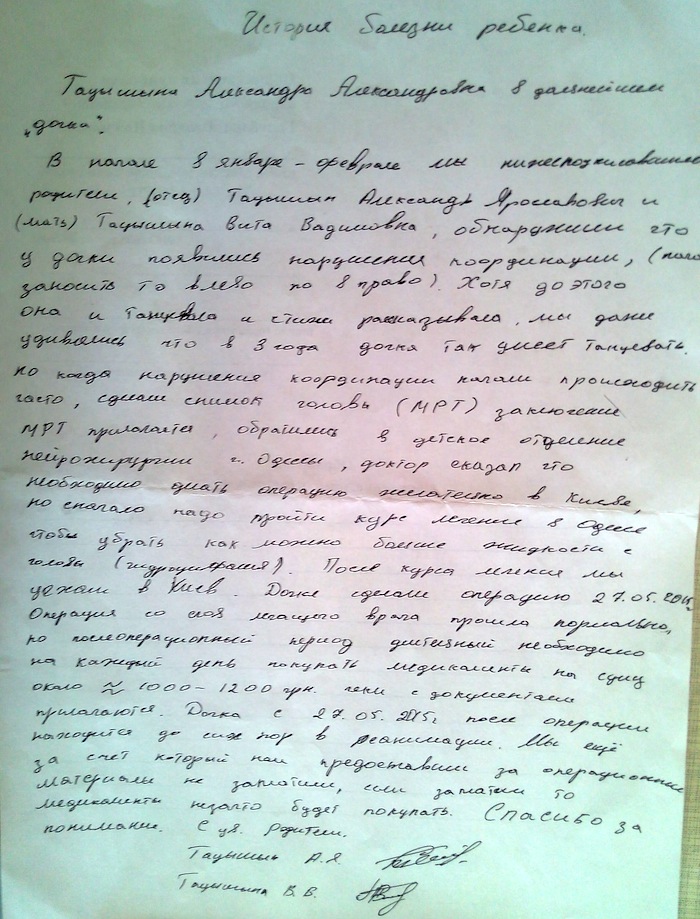 История болезни ребенка.
Тацышина Александра Александровна в дальнейшем
„дочка".
В начале в январе - феврале мы нижеподписавшиеся
родители, (отец) Тацышин Александр Ярославович и
(мать) Тацышина Вита Вадимовна, обнаружили что
у дочки появились нарушения координации, (начало
заносить то влево то в право). Хотя до этого
она и танцевала и стихи рассказывала, мы даже
удивлялись что в 3 года дочка так умеет танцевать.
но когда нарушения координации начали происходить
часто, сделали снимок головы (МРТ) заключение
МРТ прилагается, обратились в детское отделение
нейрохирургии г. Одессы, доктор сказал что
необходимо делать операцию желательно в Киеве,
но сначало надо пройти курс лечения в Одессе
чтобы убрать как можно больше жидкости с
головы (гидроцефалия). После курса лечения мы
уехали в Киев. Дочке сделали операцию 27.05.2015г.
Операция со слов лечащего врача прошла нормально,
но послеоперационный период длительный необходимо
на каждый день покупать медикаменты на сумму
около ≈ 1000-1200 грн. чеки с документами
прилагаются. Дочка с 27.05.2015г. после операции
находится до сих пор в реанимации. Мы ещё
за счет который нам предоставили за операционные
материалы не заплатили, если заплатим то
медикаменты незачто будет покупать. Спасибо за
понимание. С ув. Родители.
Тацышин А.Я.
Тацышина В.В.